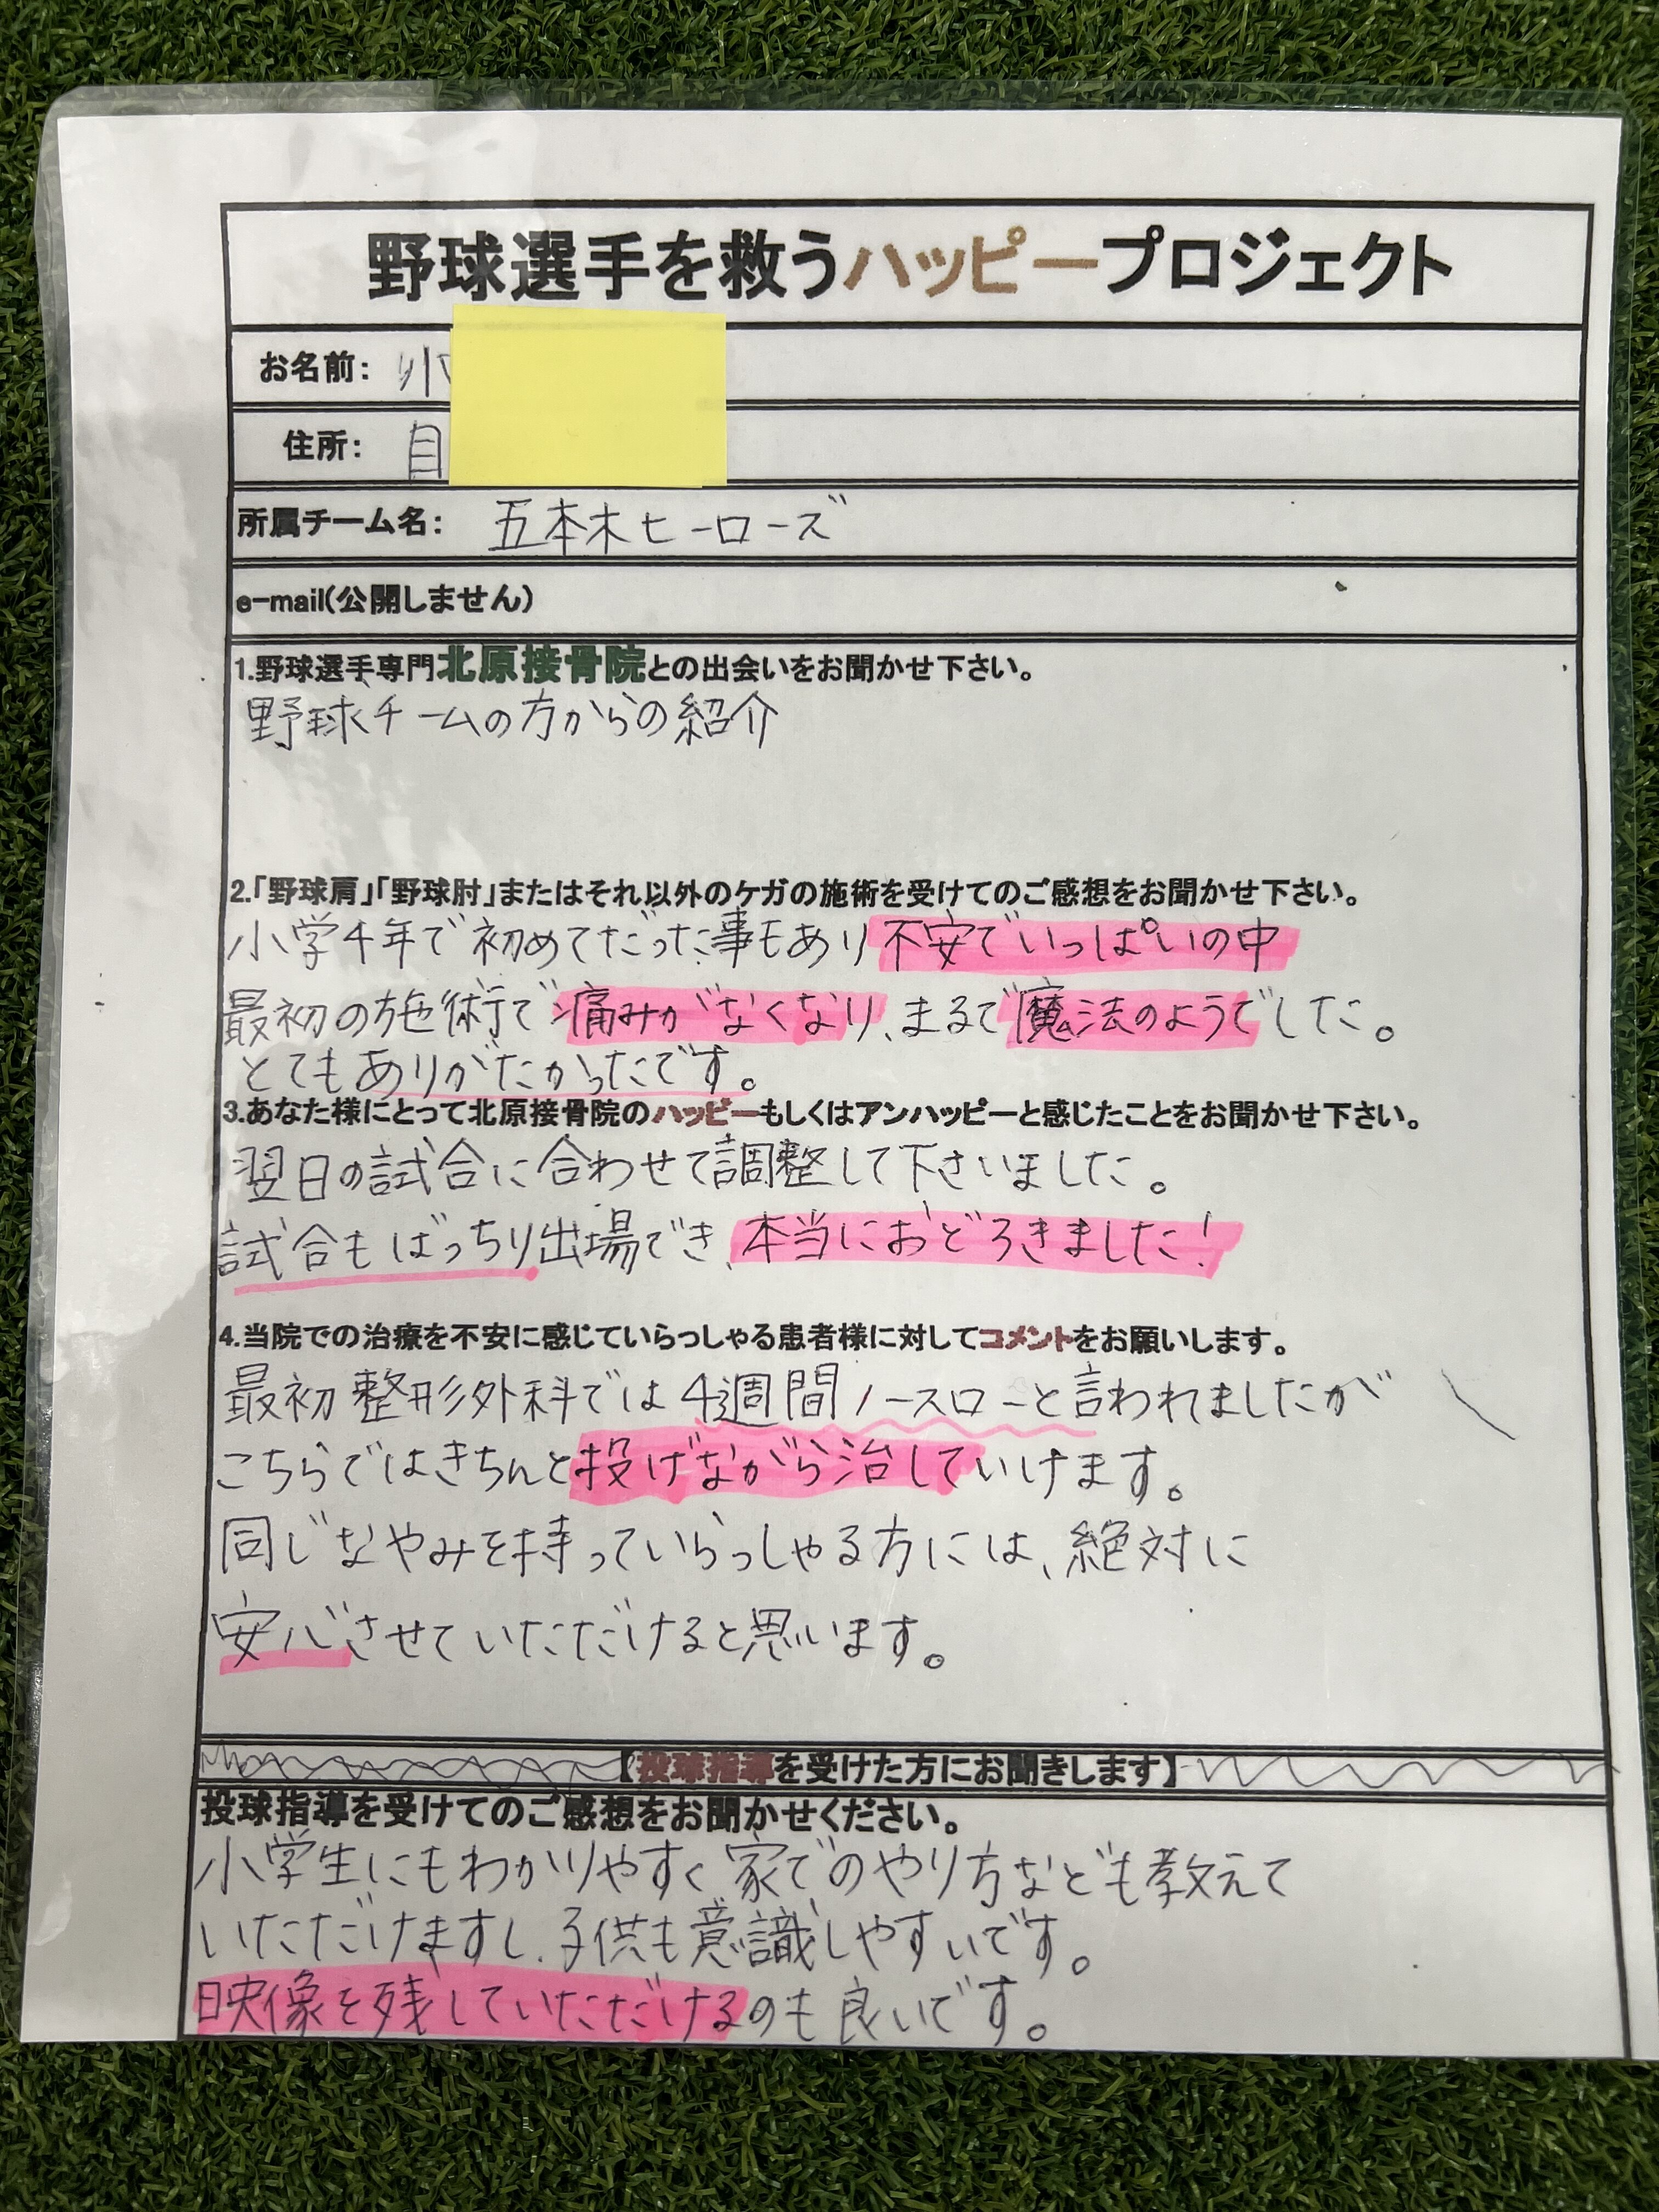 野球選手を救うハッピープロジェクト
お名前: 小
住所: 目
所属チーム名: 五本木ヒーローズ
e-mail(公開しません)
1.野球選手専門北原接骨院との出会いをお聞かせ下さい。
野球チームの方からの紹介
2.「野球肩」「野球肘」またはそれ以外のケガの施術を受けてのご感想をお聞かせ下さい。
小学4年で初めてだった事もあり不安でいっぱいの中
最初の施術で痛みがなくなり、まるで魔法のようでした。
とてもありがたかったです。
3.あなた様にとって北原接骨院のハッピーもしくはアンハッピーと感じたことをお聞かせ下さい。
翌日の試合に合わせて調整して下さいました。
試合もばっちり出場でき、本当におどろきました!
4.当院での治療を不安に感じていらっしゃる患者様に対してコメントをお願いします。
最初整形外科では4週間ノースローと言われましたが
こちらではきちんと投げながら治していけます。
同じなやみを持っていらっしゃる方には、絶対に
安心させていただけると思います。
【投球指導を受けた方にお聞きします】
投球指導を受けてのご感想をお聞かせください。
小学生にもわかりやすく家でのやり方なども教えて
いただけますし、子供も意識しやすいです。
映像を残していただけるのも良いです。